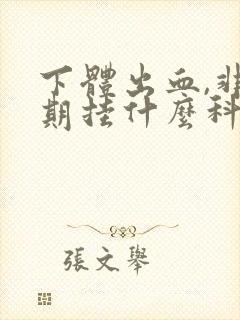 下體出血,非
期挂什麼科
張文舉